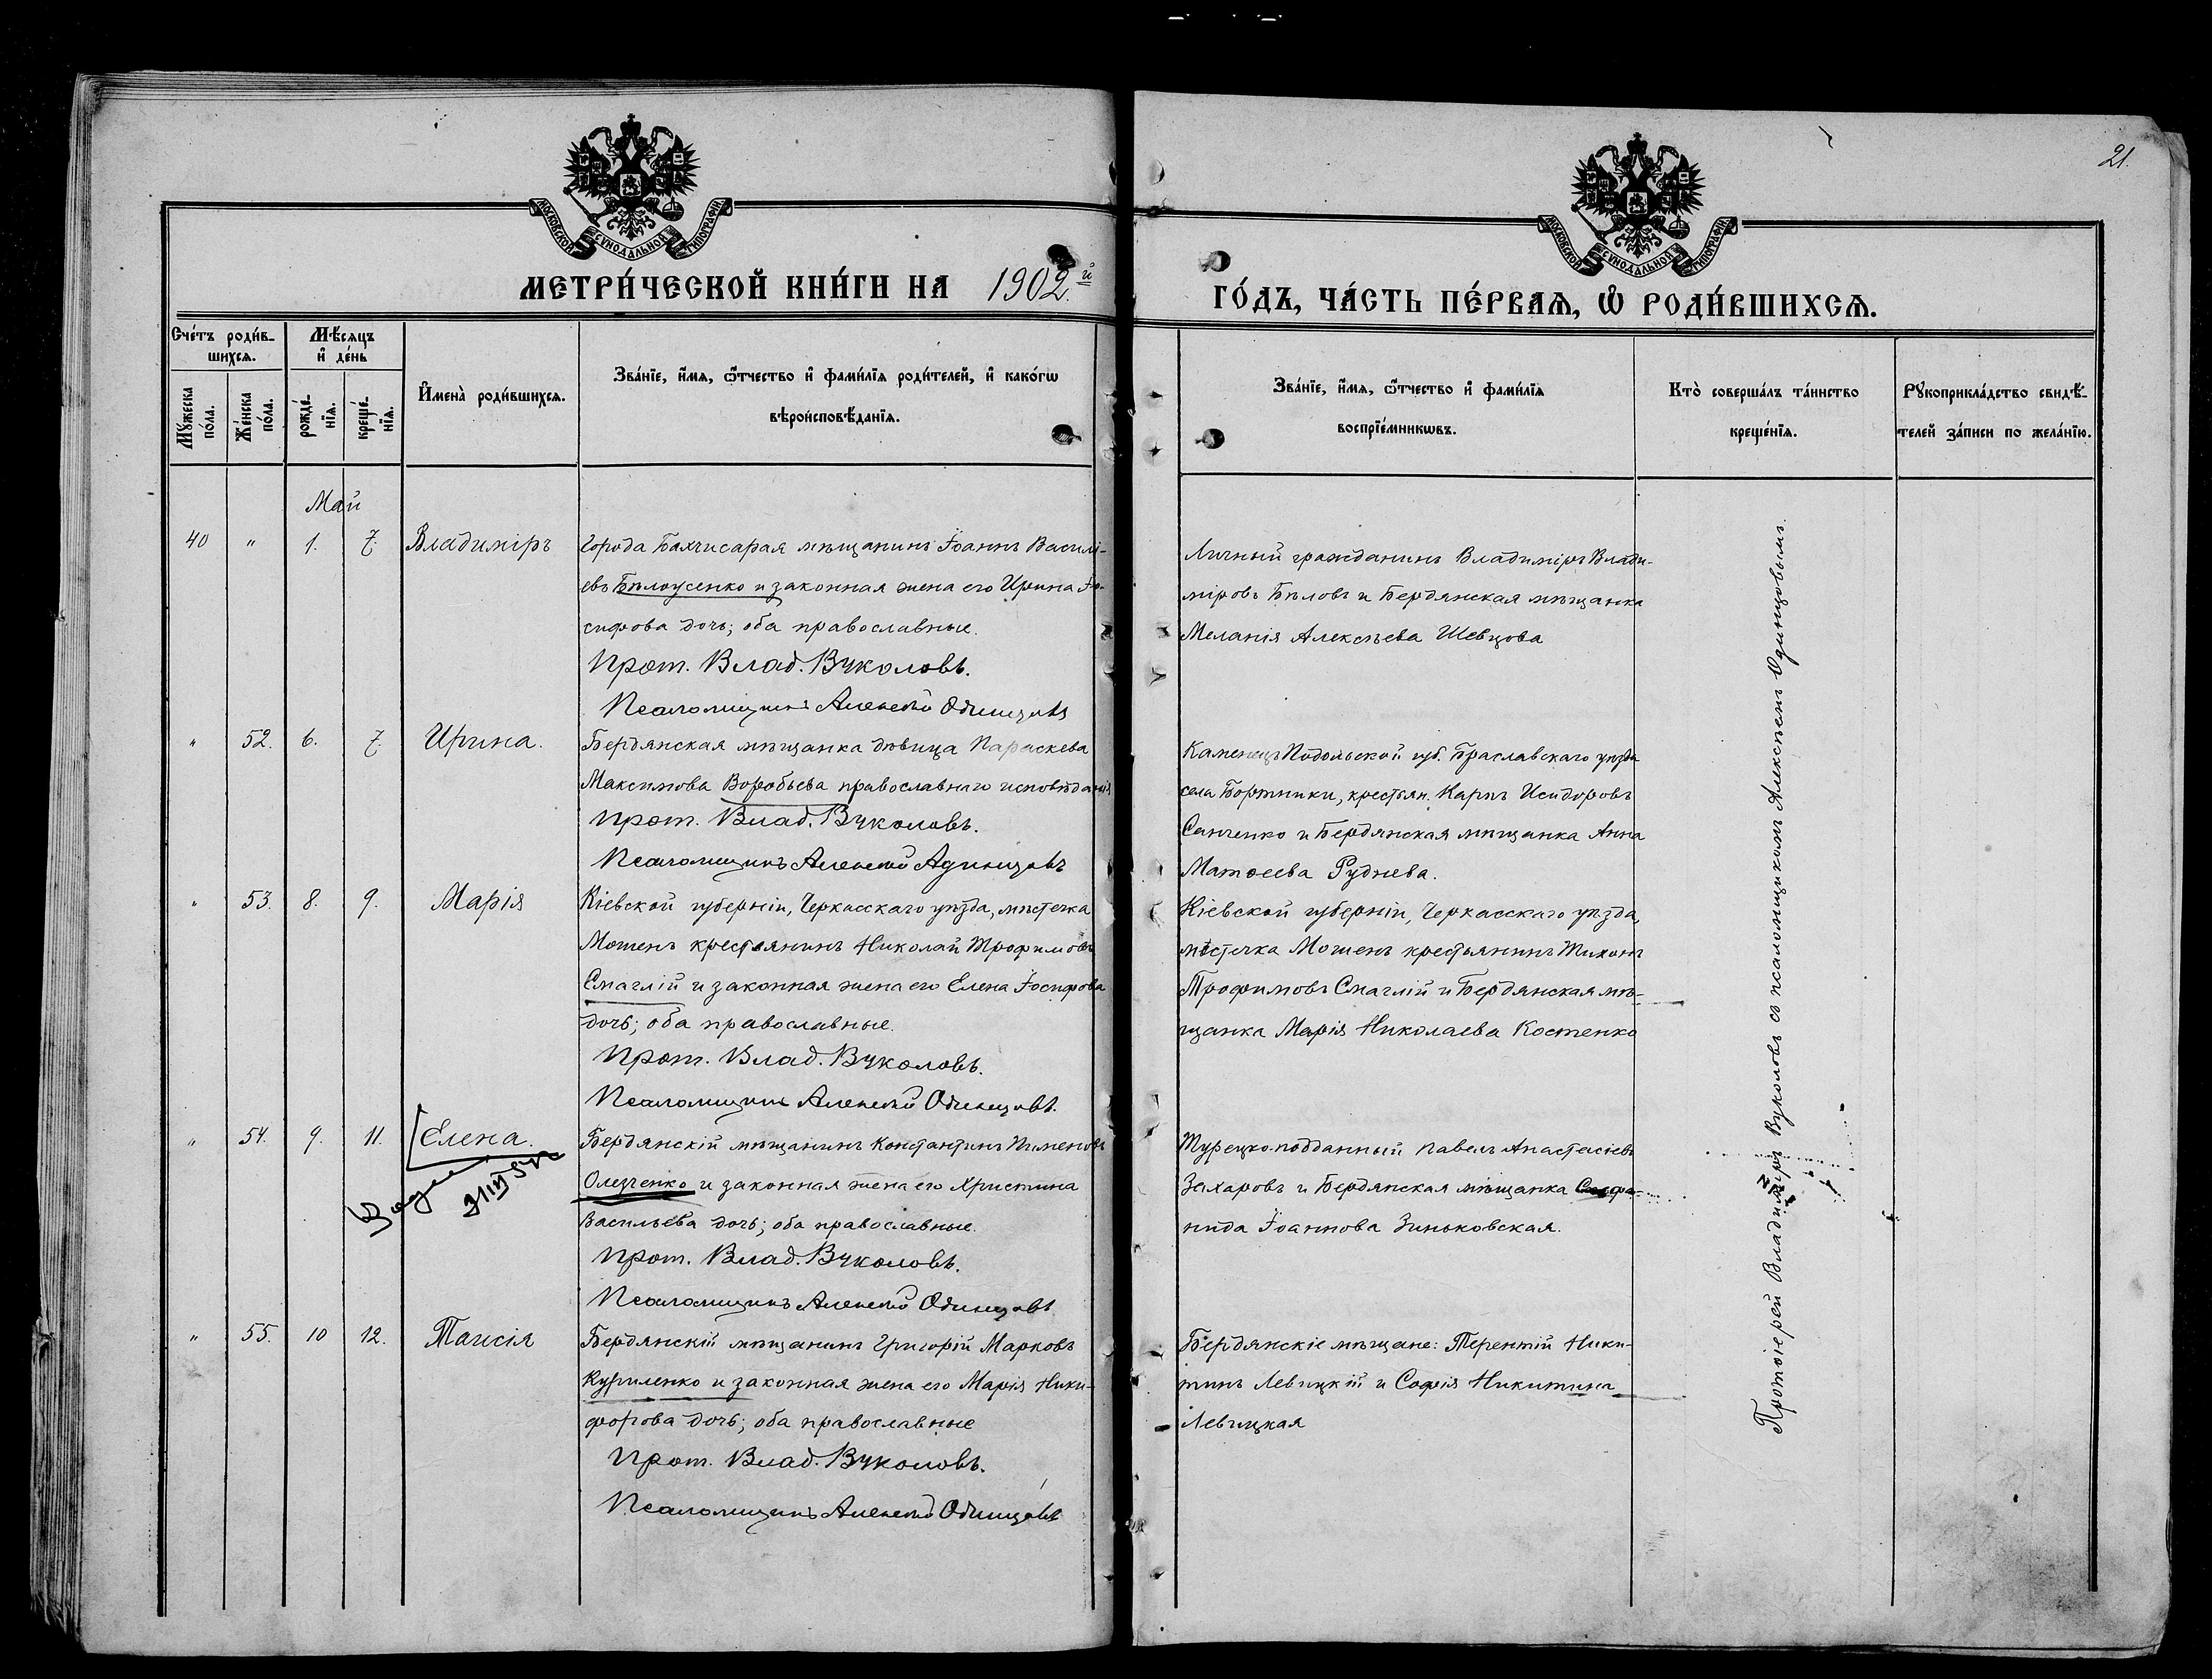 21.
МОСКОВСКОЙ СѴНОДАЛЬНОЙ ТИПОГРАФІИ
МОСКОВСКОЙ СѴНОДАЛЬНОЙ ТИПОГРАФІИ
МЕТРИ́ЧЕСКОЙ КНИ́ГИ НА 1902.й
ГО́ДЪ, ЧА́СТЬ ПЕ́РВАѦ, Ѽ РОДИ́ВШИХСѦ.
Сче́тъ роди́в-
шихсѧ.
Мꙋ́жеска по́ла.
Же́нска по́ла.
Мѣ́сѧцъ
и҆ де́нь
рожде́-
нїѧ.
креще́-
нїѧ.
И҆мена̀ роди́вшихсѧ.
Зва́нїе, и҆́мѧ, ѻ҆́тчество и҆ фами́лїѧ роди́телей, и҆ како́гѡ
вѣроисповѣ́данїѧ.
Зва́нїе, и҆́мѧ, ѻ҆́тчество и҆ фами́лїѧ
воспрїе́мникѡвъ.
Кто̀ соверша́лъ та́инство
креще́нїѧ.
Рꙋкоприкла́дство свидѣ́-
телей за́писи по жела́нїю.
Май
40 " 1. 7. Владиміръ
Города Бахчисарая мѣщанинъ Іоаннъ Василі-
евъ Бѣлоусенко и законная жена его Ирина Іо-
сифова дочь; оба православные.
Прот. Влад. Вуколовъ.
Псаломщикъ Алексѣй Одинцовъ
Личный гражданинъ Владиміръ Влади-
міровъ Бѣловъ и Бердянская мѣщанка
Меланія Алексѣева Шевцова
" 52. 6. 7. Ирина.
Бердянская мѣщанка дѣвица Параскева
Максимова Воробьева православнаго исповѣданія
Прот. Влад. Вуколовъ.
Псаломщикъ Алексѣй Адинцовъ
Каменецъ Подольской губ. Браславскаго уѣзда
села Бортники, крестьян. Карпъ Исидоровъ
Санченко и Бердянская мѣщанка Анна
Матѳеева Руднева.
" 53. 8. 9. Марія
Кіевской губерніи, Черкасскаго уѣзда, мѣстечка
Мошенъ крестьянинъ Николай Трофимовъ
Смаглій и законная жена его Елена Іосифова
дочь; оба православные.
Прот. Влад. Вуколовъ.
Псаломщикъ Алексѣй Одинцовъ.
Кіевской губерніи, Черкасскаго уѣзда,
мѣстечка Мошенъ крестьянинъ Тихонъ
Трофимовъ Смаглій и Бердянская мѣ-
щанка Марія Николаева Костенко
" 54. 9. 11. Елена.
Бердянскій мѣщанинъ Константинъ Пименовъ
Олейченко и законная жена его Христина
Васильева дочь; оба православные.
Прот. Влад. Вуколовъ.
Псаломщикъ Алексѣй Одинцовъ
Турецко-подданный Павелъ Анастасіевъ
Захаровъ и Бердянская мѣщанка
нида Іоаннова Зиньковская.
" 55. 10 12. Таисія
Бердянскій мѣщанинъ Григорій Марковъ
Куриленко и законная жена его Марія Ники-
форова дочь; оба православные
Прот. Влад. Вуколовъ.
Псаломщикъ Алексѣй Одинцовъ
Бердянскіе мѣщане: Терентій Ники-
тинъ Левицкій и Софія Никитина
Левицкая
Протоіерей Владиміръ Вуколовъ съ псаломщикомъ Алексѣемъ Одинцовымъ.